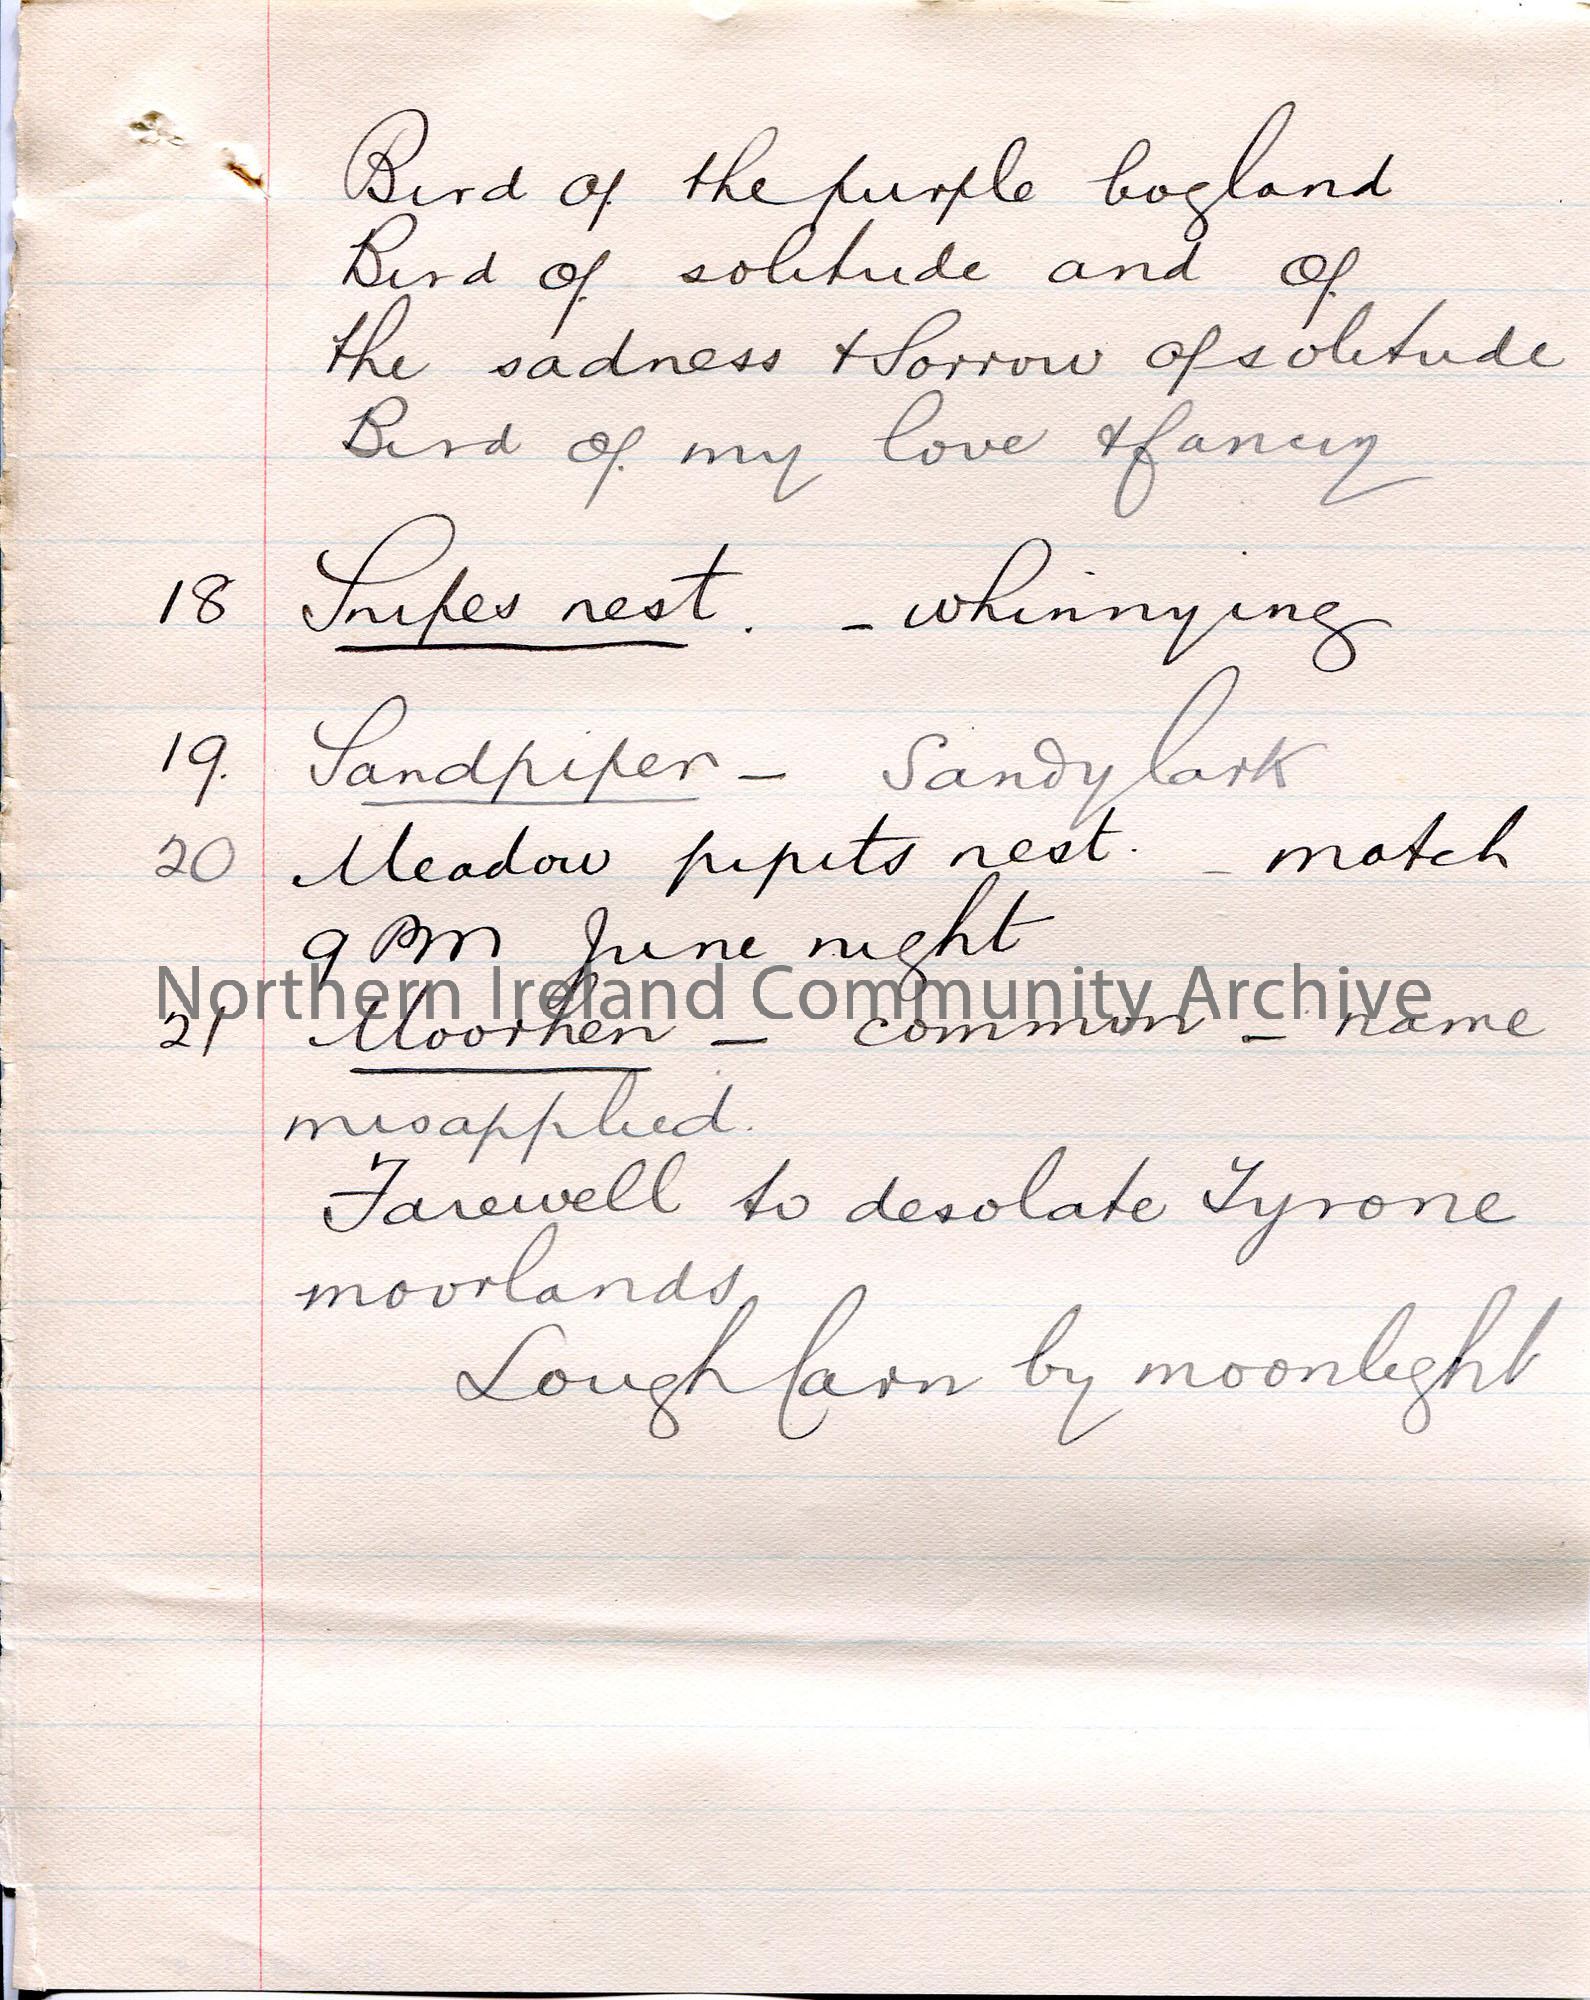 Bird of the purple bogland
Bird of solitude and of
the sadness & Sorrow of solitude
Bird of my love & fancy
18 Snipes nest. - whinnying
19. Sandpiper - Sandy lark
20 Meadow pipits nest. - match
9 PM June night
Northern Ireland Community Archive
21 Moorhen - common - name
misapplied.
Farewell to desolate Tyrone
moorlands
Lough Carn by moonlight